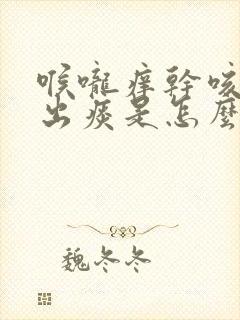 喉嚨癢幹咳
出痰是怎麼
魏冬冬